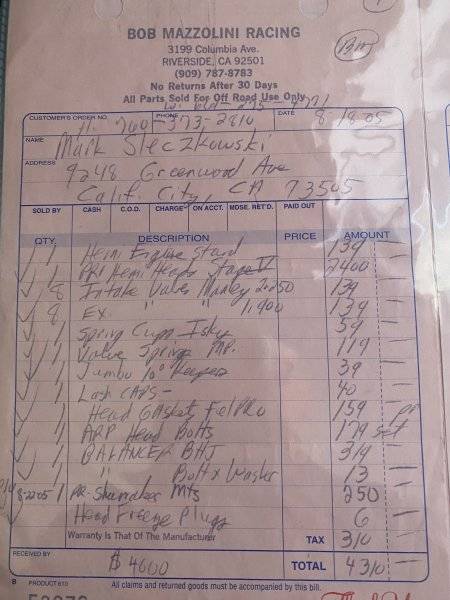 BOB MAZZOLINI RACING
3199 Columbia Ave.
RIVERSIDE, CA 92501
(909) 787-8783
No Returns After 30 Days
All Parts Sold For Off Road Use Only
CUSTOMER'S ORDER NO. PHONE DATE
H. 760-373-2810 8-18-05
NAME Mark Sleczkowski
ADDRESS 9248 Greenwood Ave
Calif. City, CA 93505
SOLD BY CASH C.O.D. CHARGE ON ACCT. MDSE. RET'D. PAID OUT
QTY. DESCRIPTION PRICE AMOUNT
1 Hemi Engine Stand 139 —
1 PR Hemi Heads Stage V 2400 —
8 Intake Valves Manley 2.250 139 —
8 Ex. " " 1.900 139 —
1 Spring Cups Isky 59 —
1 Valve Springs 119 —
1 Jumbo 10° Keepers 39 —
1 Lash CAPS — 40 —
1 Head Gaskets FelPRO 159 pr
1 ARP Head Bolts 179 set
1 BALANCER BHJ 314 —
1 " Bolt & Washer 13 —
8-22-05 1 PR. Mts 250 —
Head Freeze Plugs 6 —
Warranty Is That Of The Manufacturer TAX 310 —
RECEIVED BY $ 4000 TOTAL 4310 —
8 PRODUCT 610 All claims and returned goods must be accompanied by this bill.